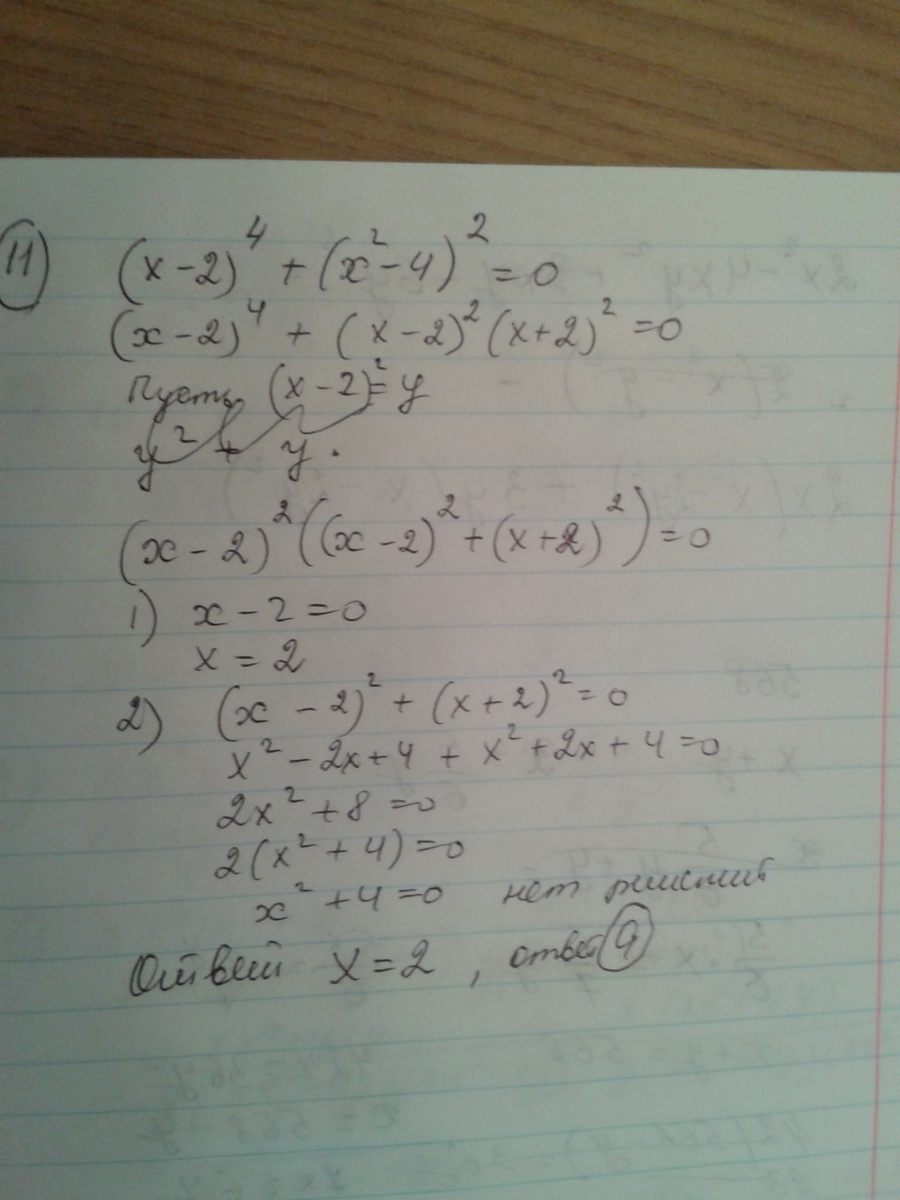 11) (x-2)⁴ + (x²-4)² = 0
(x-2)⁴ + (x-2)² (x+2)² = 0
Пусть (x-2)² = y
y² + y ·
(x-2)² ((x-2)² + (x+2)²) = 0
1) x-2=0
x = 2
2) (x-2)² + (x+2)² = 0
x² - 2x+4 + x² + 2x + 4 = 0
2x² + 8 = 0
2(x² + 4) = 0
x² + 4 = 0 нет решений
Ответ x = 2 , ответ